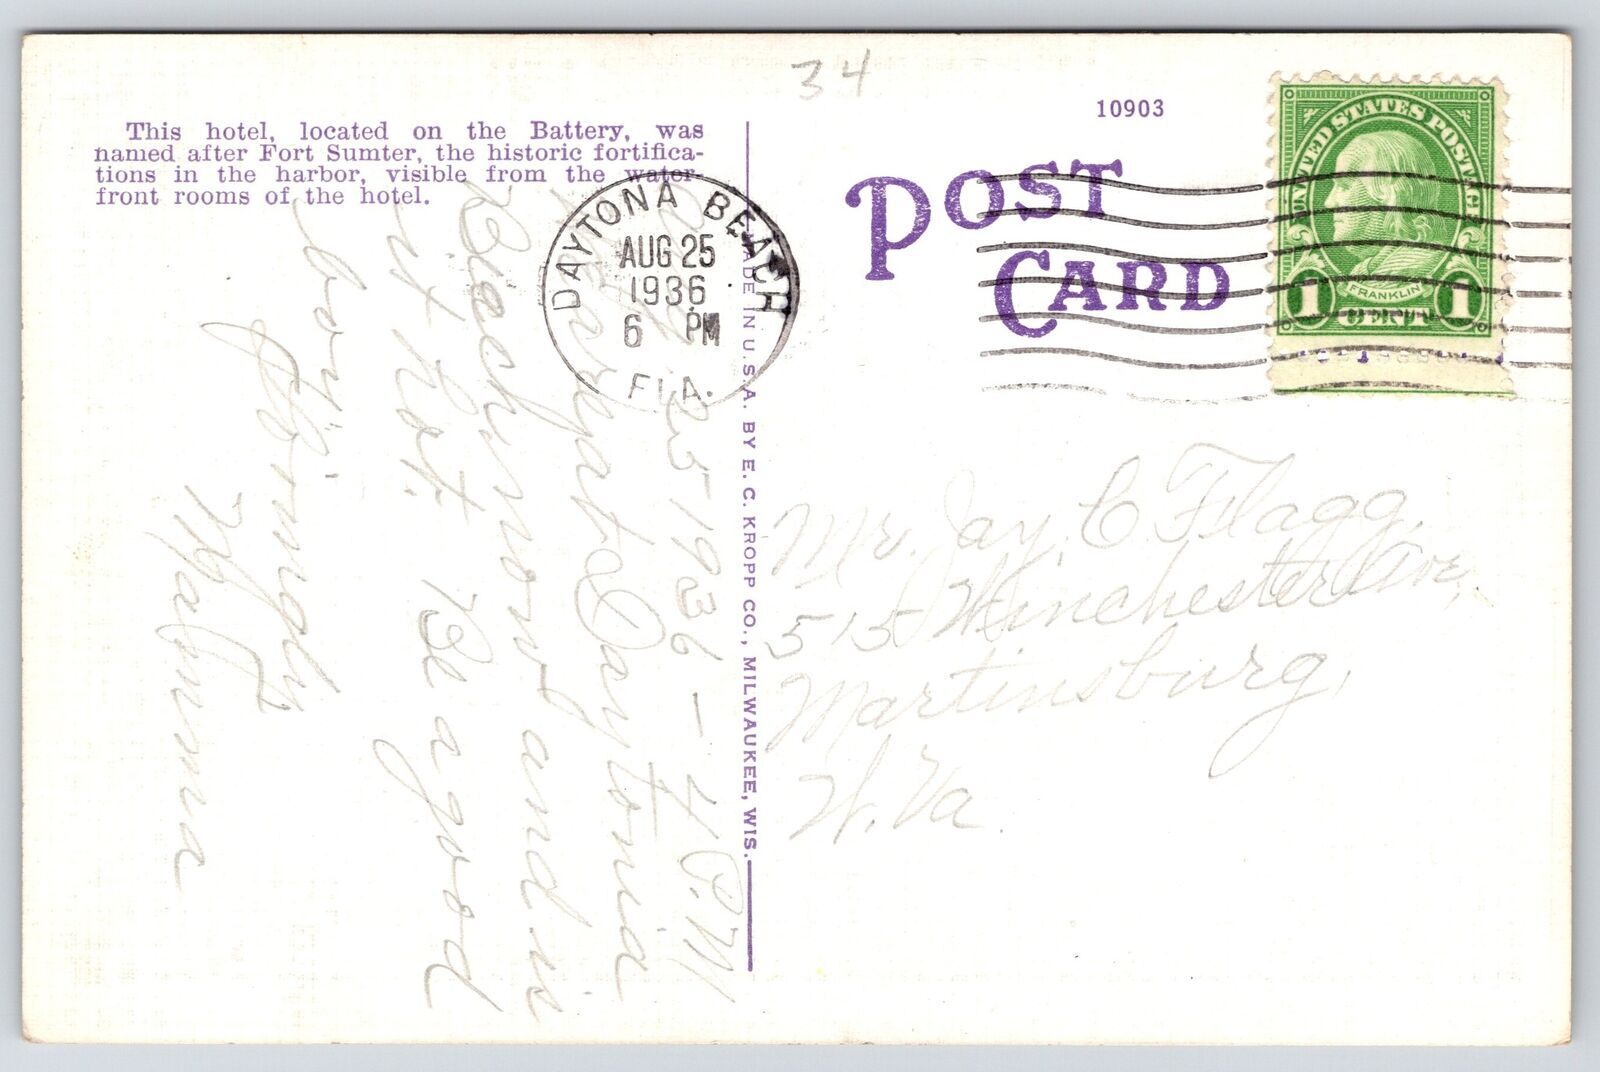 34
10903
This hotel, located on the Battery, was
named after Fort Sumter, the historic fortifica-
tions in the harbor, visible from the water-
front rooms of the hotel.
POST
CARD
UNITED STATES POSTAGE
FRANKLIN
1 CENT 1
DAYTONA BEACH
AUG 25
1936
6 PM
FLA.
MADE IN U.S.A. BY E. C. KROPP CO., MILWAUKEE, WIS.
Aug 25 1936 - 4 P.M
We are at Daytona
Beach now and is
it hot. Be a good
boy.
Lovingly
Mamma
Mr. Jay C Flagg,
515 Winchester Ave,
Martinsburg,
W. Va.